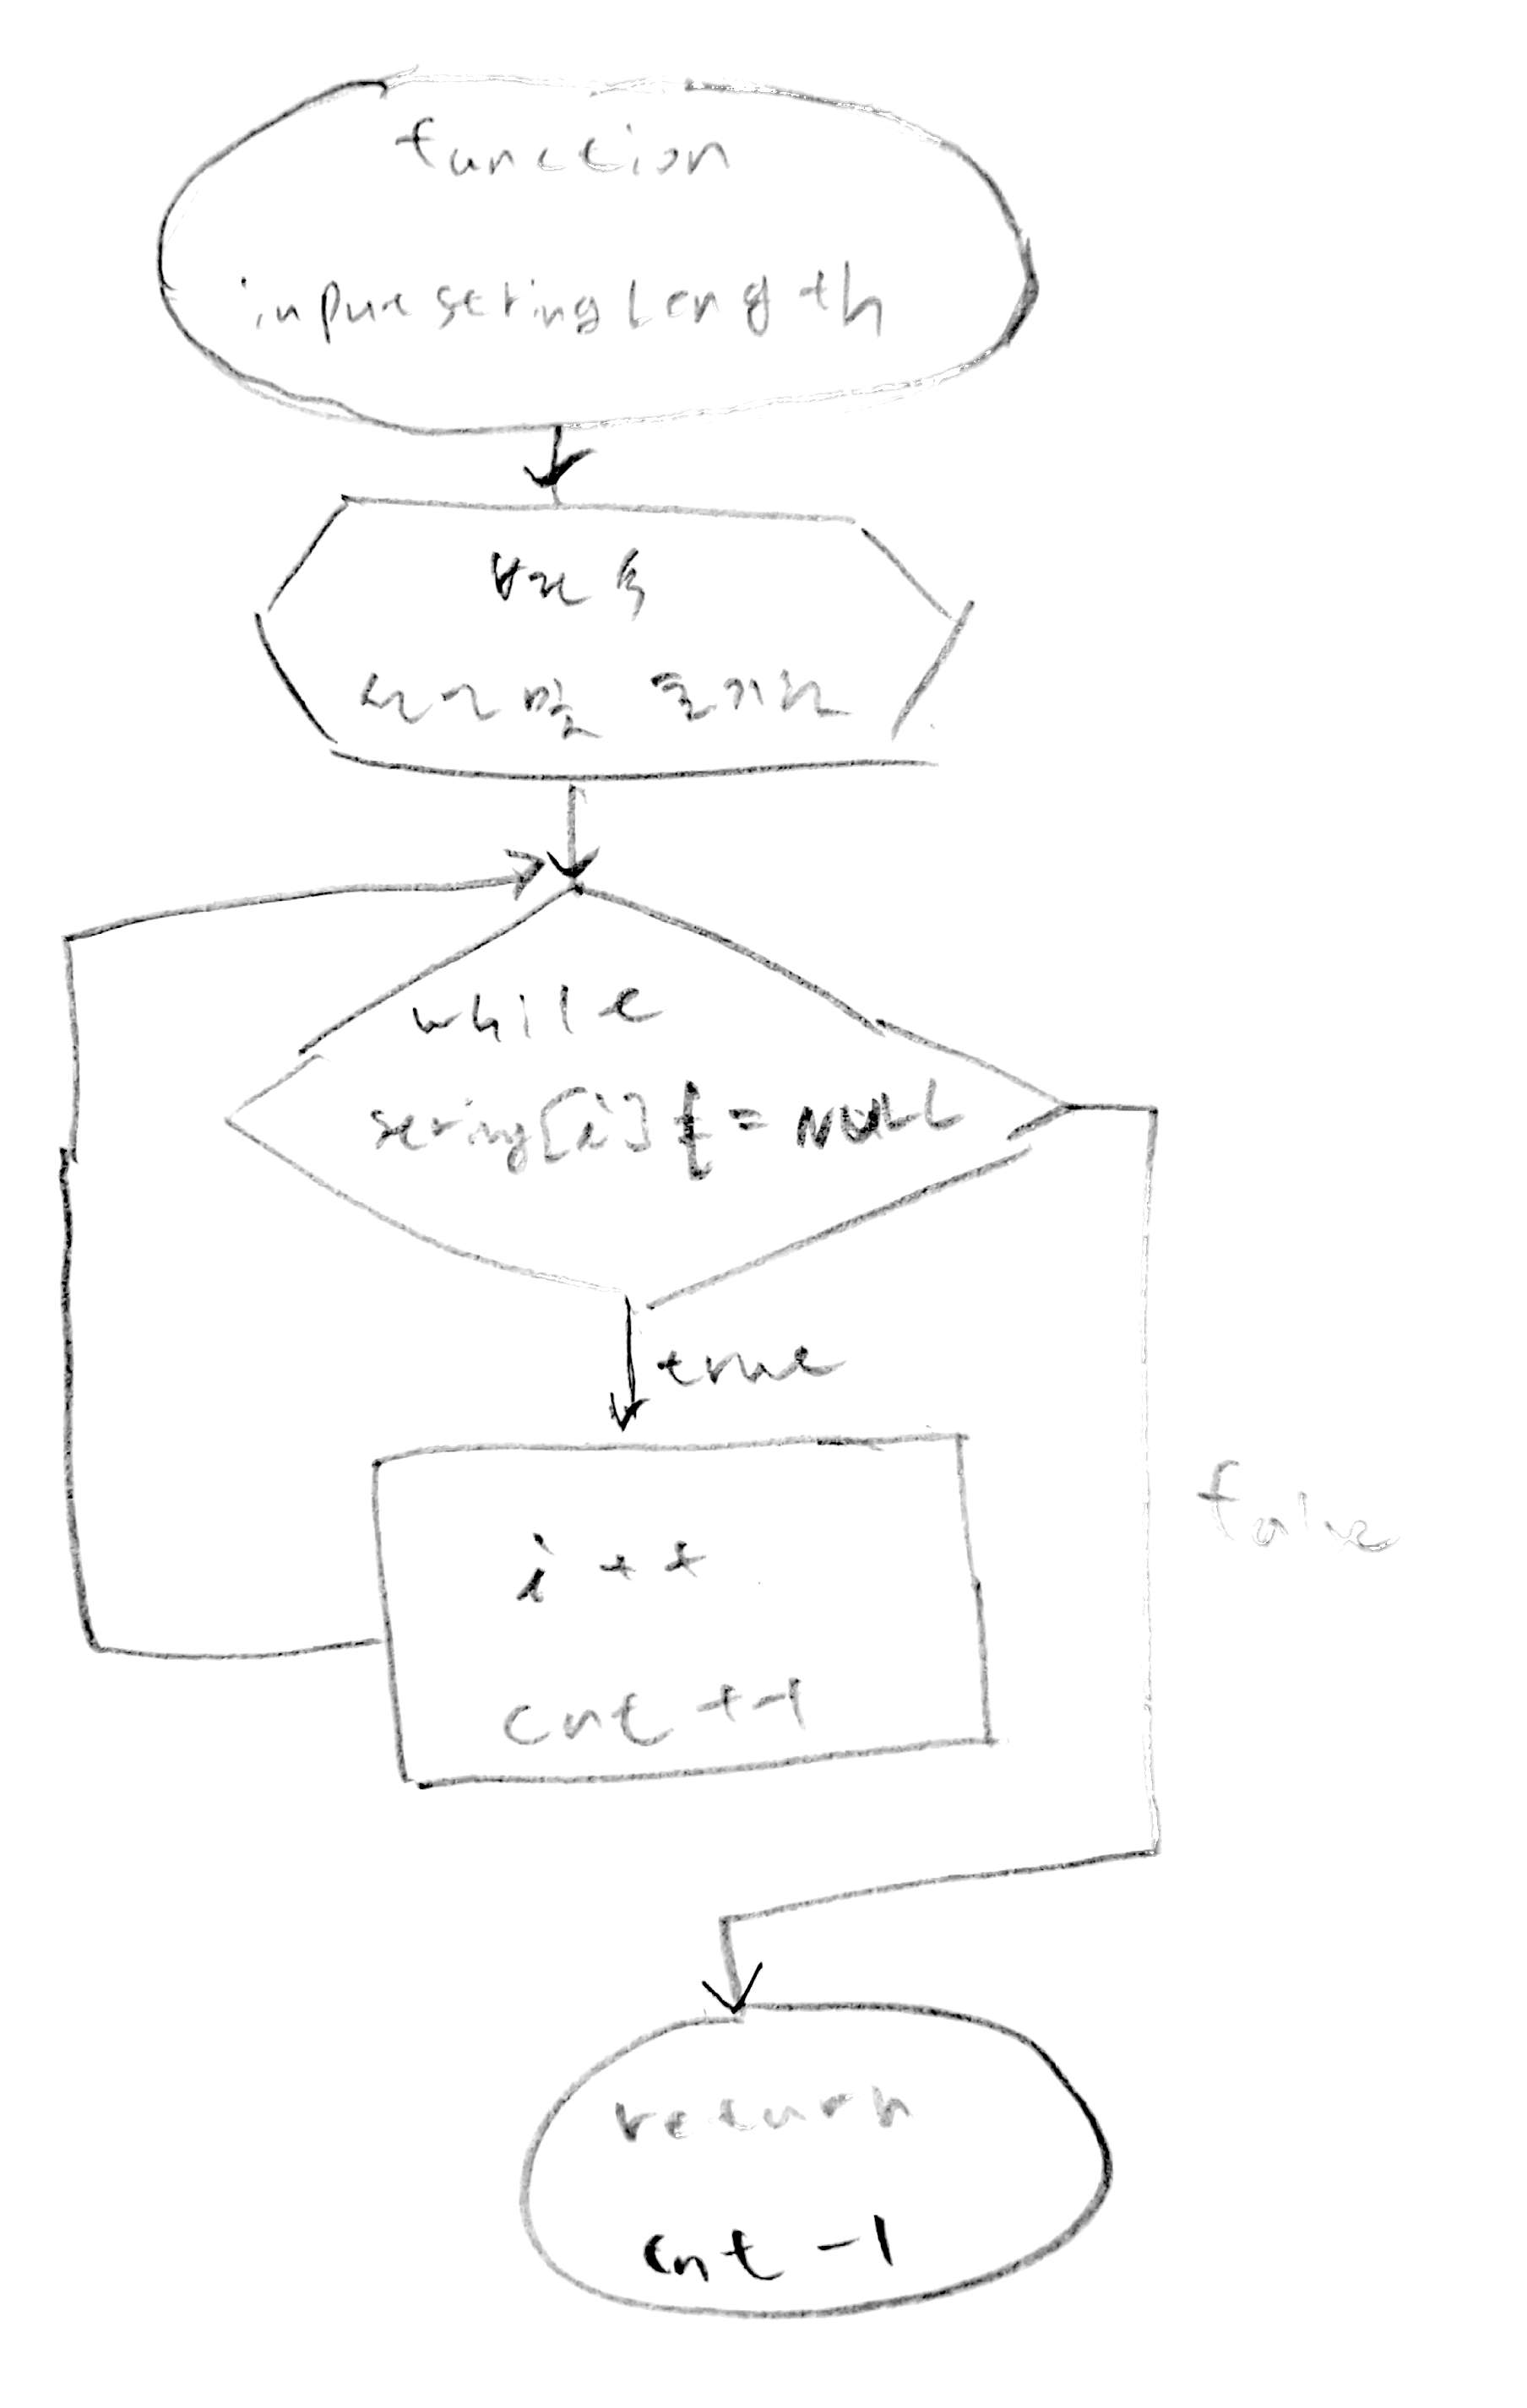 function
inputstringLength
변수
선언 및 초기화
while
string[i] != NULL
true
false
i++
cnt++
return
cnt -1